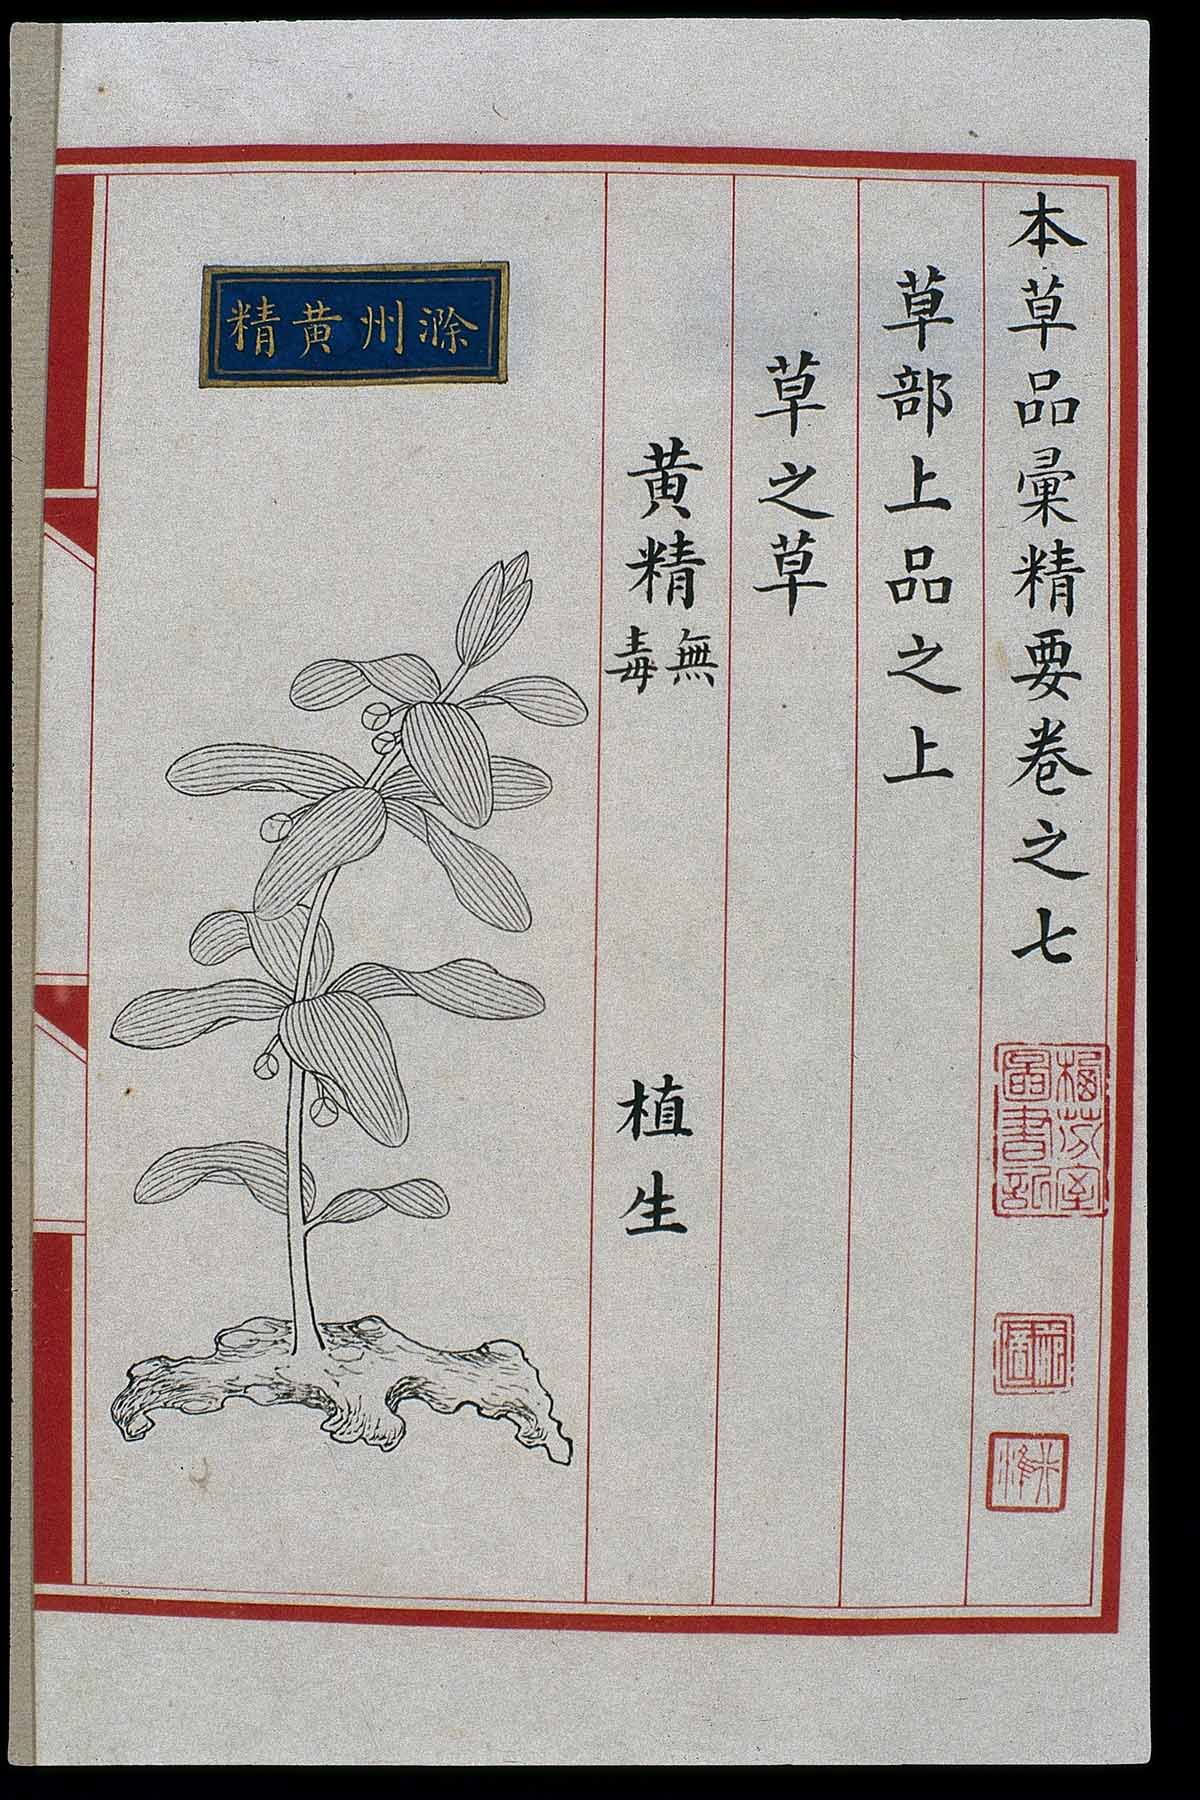 本草品彙精要卷之七
草部上品之上
草之草
黄精 無毒 植生
滁州黄精